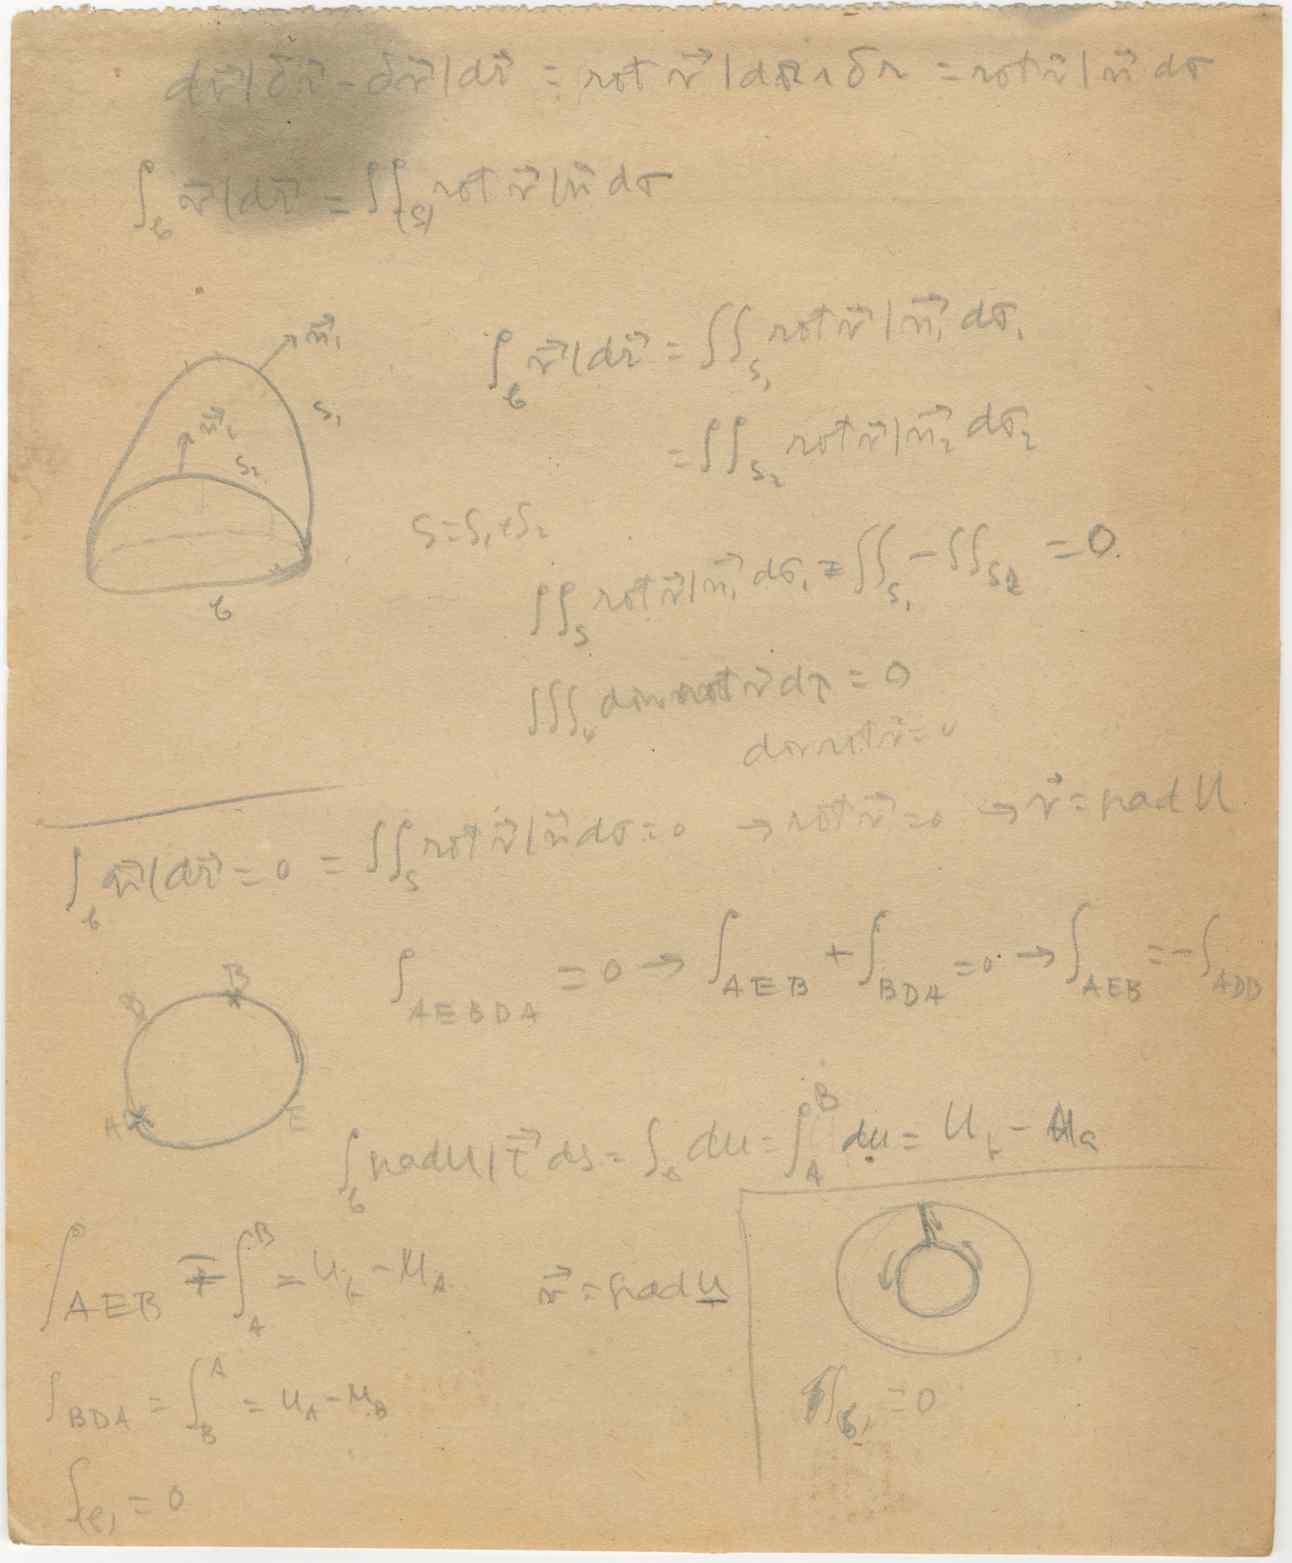 dv⃗|δr⃗ - δv⃗|dr⃗ = rot v⃗ | dr ∧ δr = rot v⃗ | n⃗ dσ
∫_C v⃗|dr⃗ = ∬_(S) rot v⃗ | n⃗ dσ
n⃗₁
S₁
n⃗₂
S₂
C
∫_C v⃗|dr⃗ = ∬_S₁ rot v⃗ | n⃗₁ dσ₁
= ∬_S₂ rot v⃗ | n⃗₂ dσ₂
S = S₁ + S₂
∬_S rot v⃗ | n⃗₁ dσ₁ = ∬_S₁ - ∬_S₂ = 0.
∭_V div rot v⃗ dτ = 0
div rot v⃗ = 0
∫_C v⃗|dr⃗ = 0 = ∬_S rot v⃗ | n⃗ dσ = 0 → rot v⃗ = 0 → v⃗ = grad U
∫_AEBDA = 0 → ∫_AEB + ∫_BDA = 0 → ∫_AEB = -∫
B
D
A
E
∫_C grad U | t⃗ ds = ∫_C du = ∫_A^B du = U_b - U_a
∫_AEB = ∫_A^B = U_b - U_A
v⃗ = grad u
∫_BDA = ∫_B^A = U_A - U_B
∫_C₁ = 0
∫_C₁ = 0